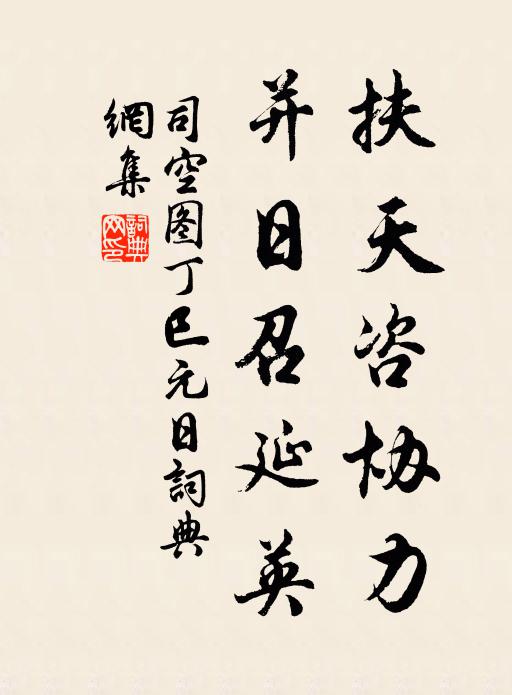 扶天咨协力
并日召延英
司空图丁巳元日詞典
網集
詞典
网印